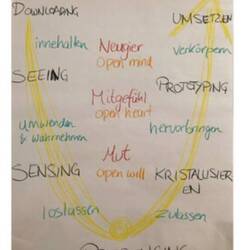 DOWNLOADING
UMSETZEN
innehalten
Neugier
open mind
verkörpern
SEEING
PROTOTYPING
Mitgefühl
open heart
umwenden
& wahrnehmen
hervorbringen
Mut
open will
SENSING
KRISTALLISIER
EN
loslassen
zulassen